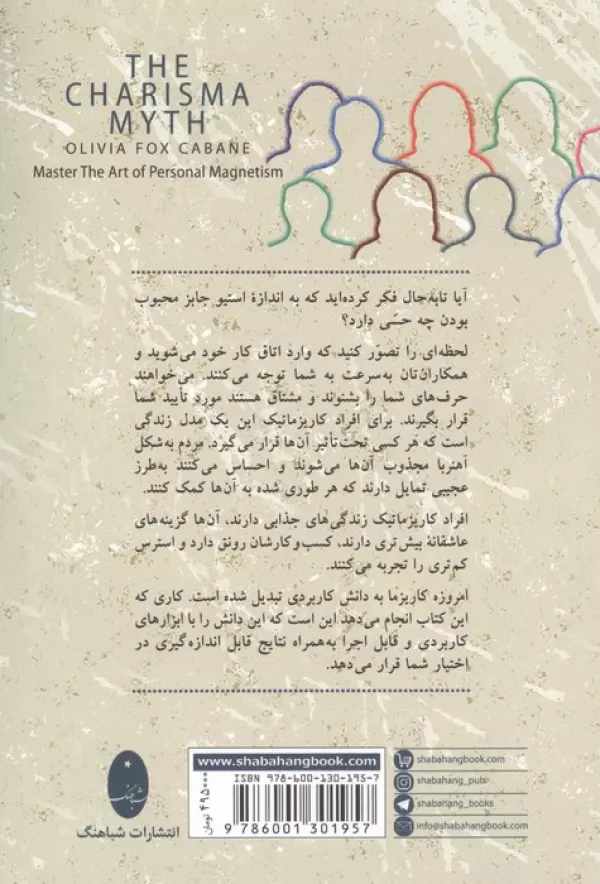 THE
CHARISMA
MYTH
OLIVIA FOX CABANE
Master The Art of Personal Magnetism
آیا تابه‌حال فکر کرده‌اید که به اندازهٔ استیو جابز محبوب
بودن چه حسّی دارد؟
لحظه‌ای را تصوّر کنید که وارد اتاق کار خود می‌شوید و
همکاران‌تان به‌سرعت به شما توجه می‌کنند. می‌خواهند
حرف‌های شما را بشنوند و مشتاق هستند مورد تأیید شما
قرار بگیرند. برای افراد کاریزماتیک این یک مدل زندگی
است که هر کسی تحت‌تأثیر آن‌ها قرار می‌گیرد. مردم به‌شکل
آهنربا مجذوب آن‌ها می‌شوند و احساس می‌کنند به‌طرز
عجیبی تمایل دارند که هر طوری شده به آن‌ها کمک کنند.
افراد کاریزماتیک زندگی‌های جذابی دارند، آن‌ها گزینه‌های
عاشقانهٔ بیش‌تری دارند، کسب‌وکارشان رونق دارد و استرس
کم‌تری را تجربه می‌کنند.
امروزه کاریزما به دانش کاربردی تبدیل شده است. کاری که
این کتاب انجام می‌دهد این است که این دانش را با ابزارهای
کاربردی و قابل اجرا به‌همراه نتایج قابل اندازه‌گیری در
اختیار شما قرار می‌دهد.
شباهنگ
انتشارات شباهنگ
www.shabahangbook.com
ISBN 978-600-130-195-7
9 786001 301957
۴۹۵۰۰۰ تومان
shabahangbook.com
shabahang_pub
shabahang_books
info@shabahangbook.com